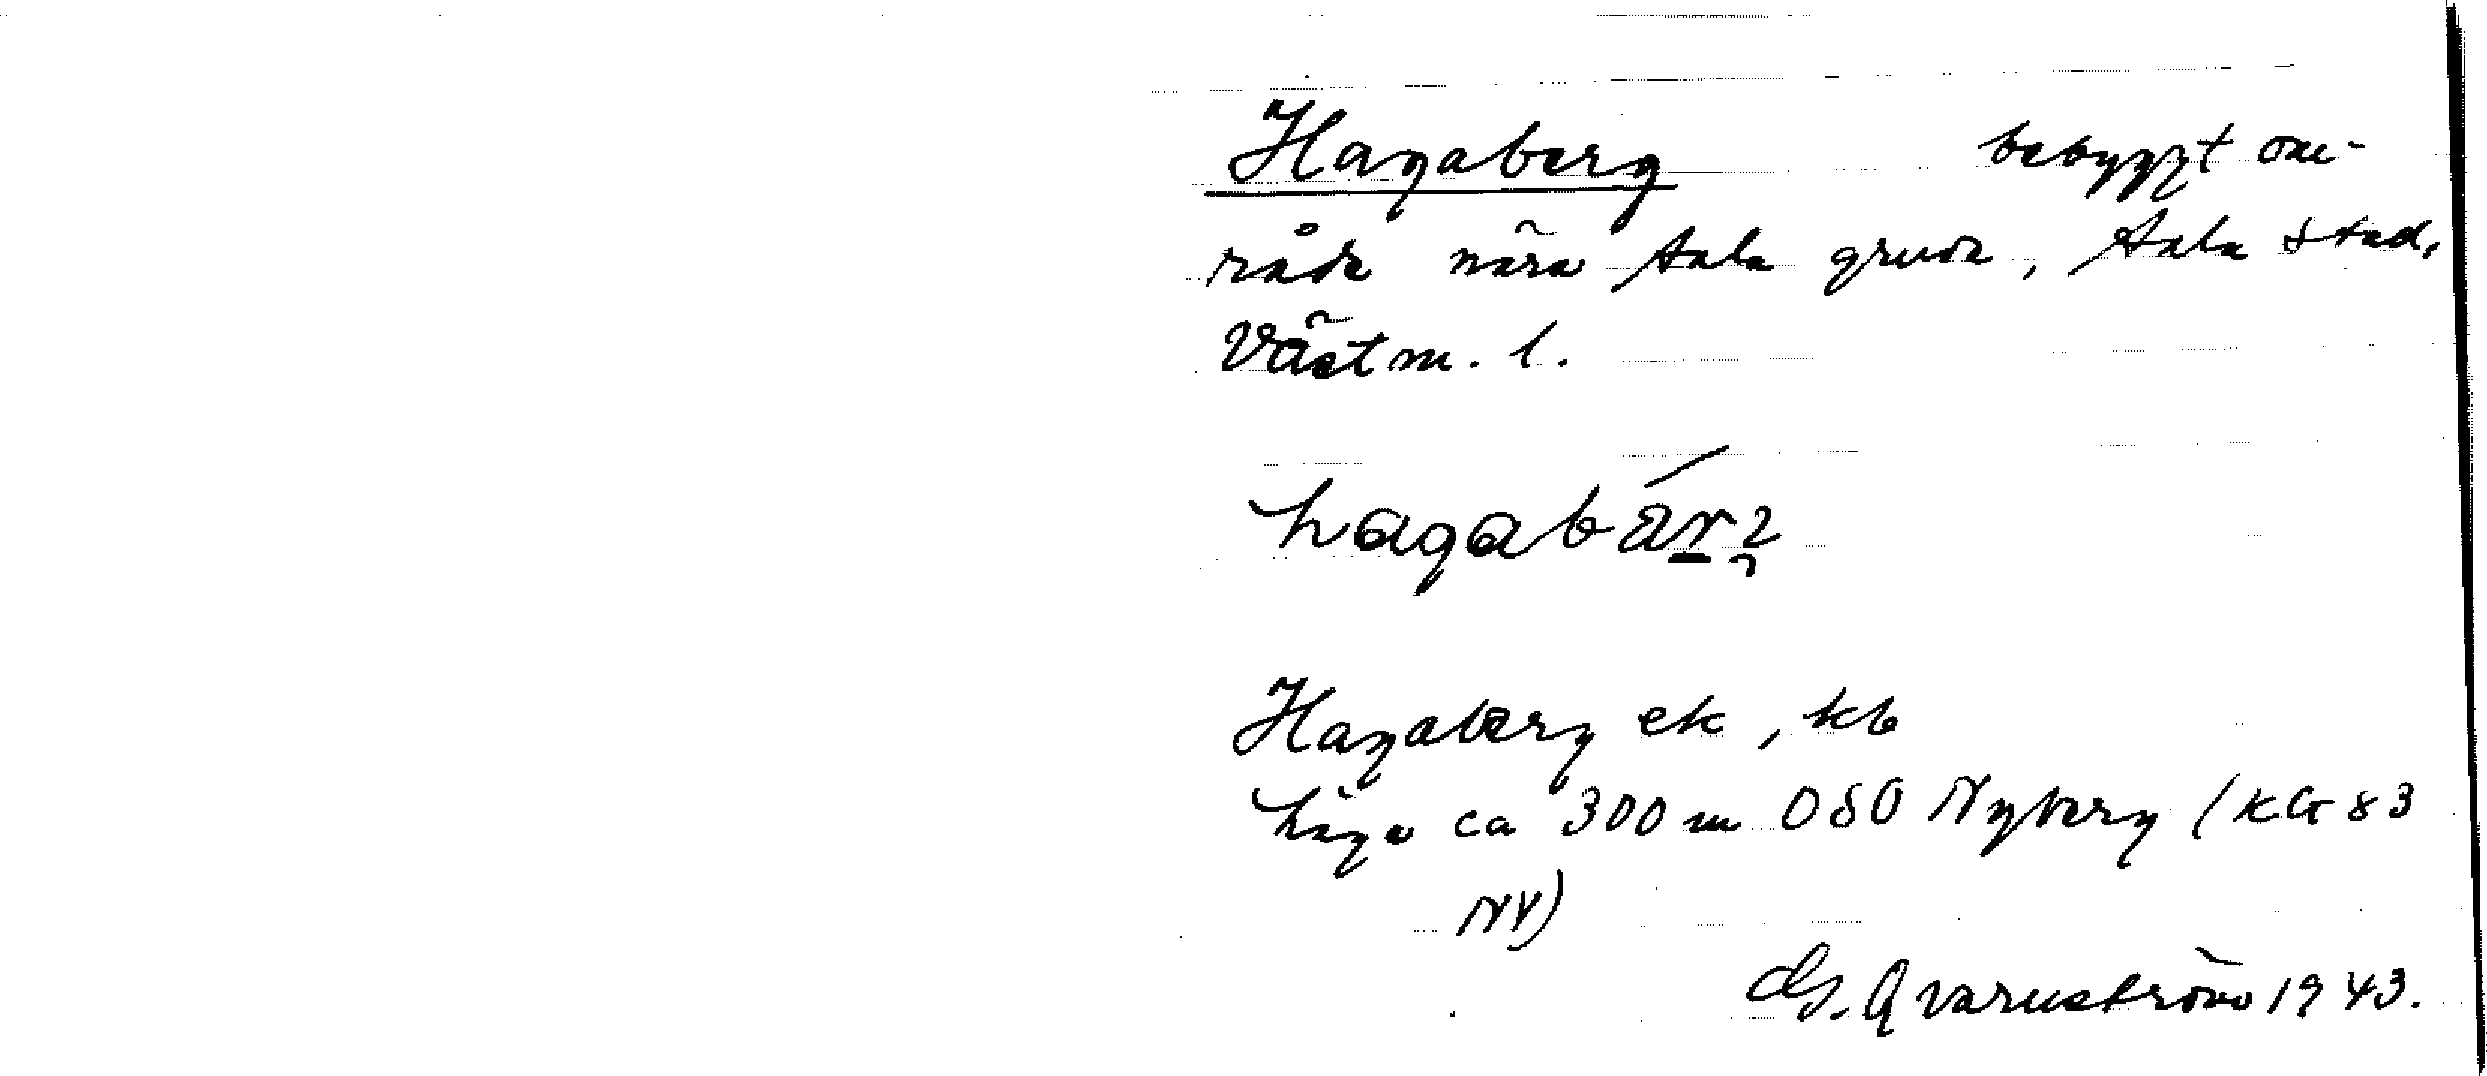 Hagaberg bebyggt om-
råde nära Sala gruva, Sala stad,
Västm. l.
hagabár
Hagaberg ek, kb
läge ca 300 m OSO Nyberg (KG 83
NV)
G. Qvarnström 1943.